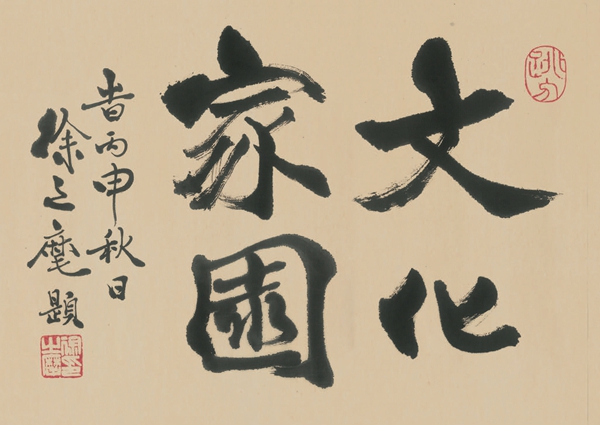 文化
家園
旹丙申秋日
徐之麾題